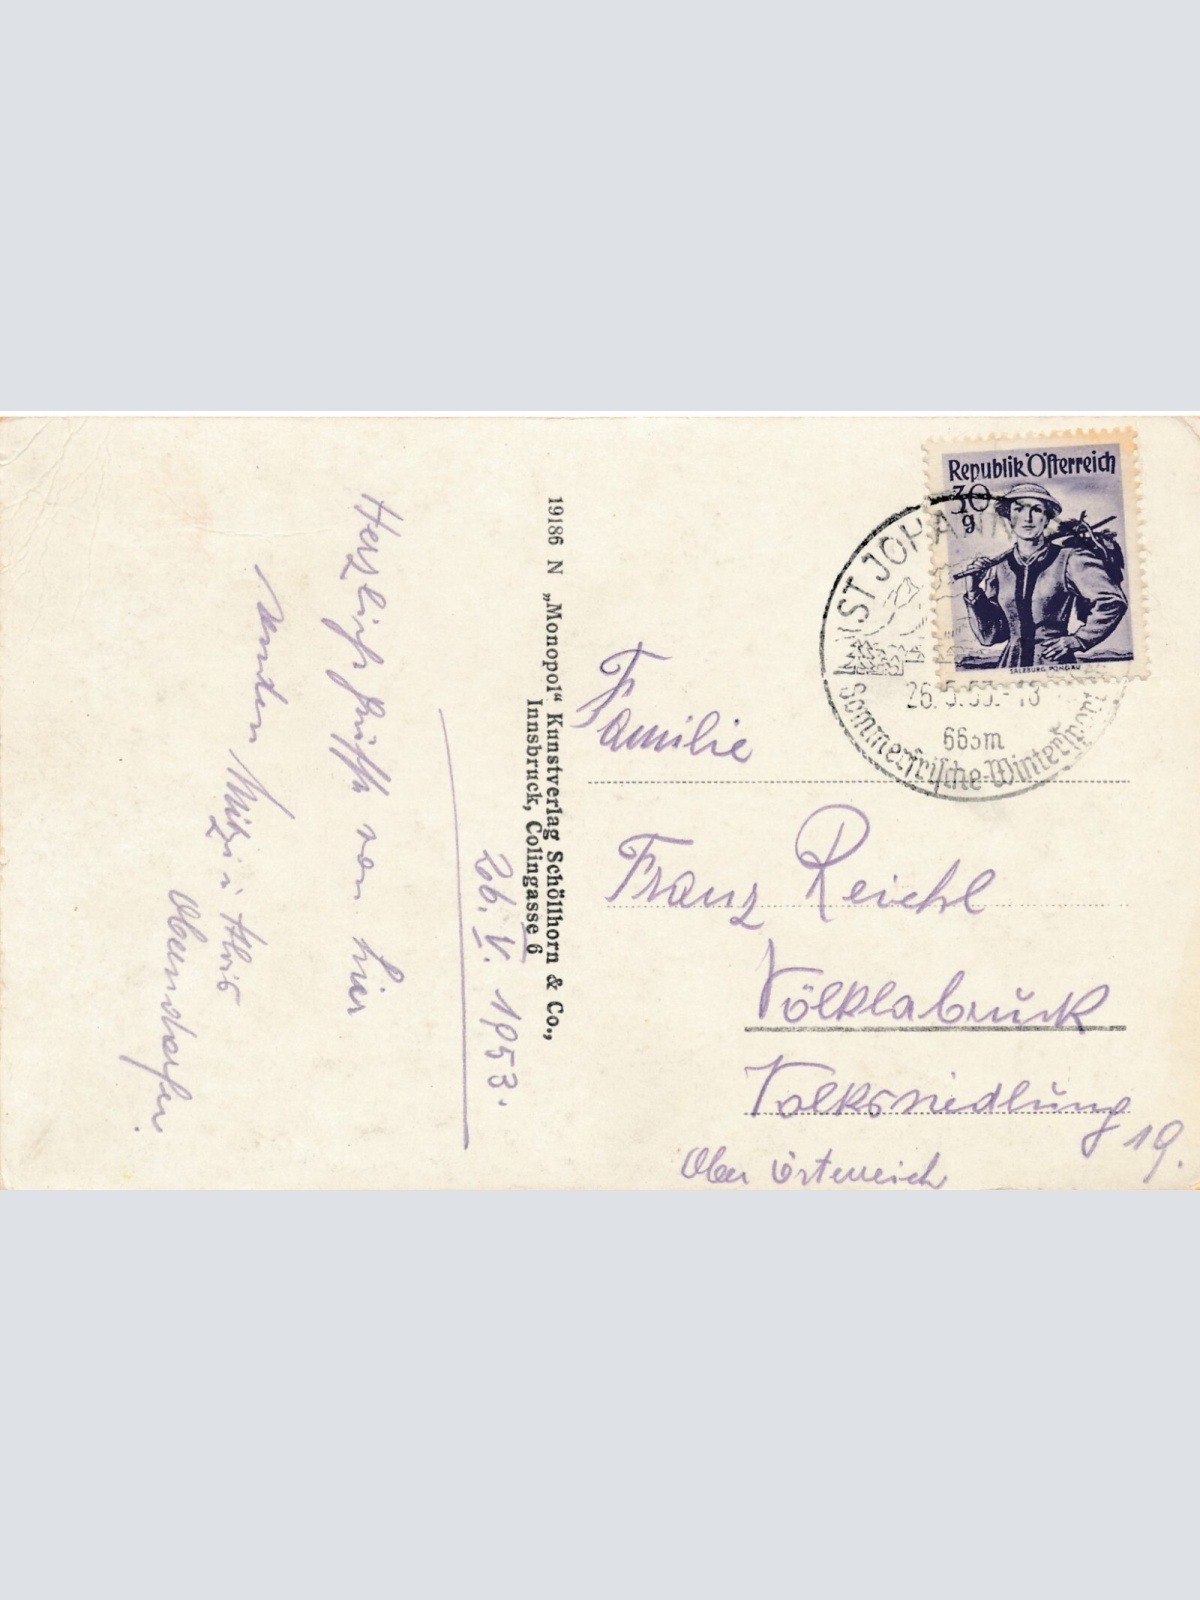 26. V. 1953.
Herzliche Grüße von hier
senden Mitzi u Alois
19186 N „Monopol“ Kunstverlag Schöllhorn & Co.,
Innsbruck, Colingasse 6
Republik Österreich
30
g
SALZBURG, PONGAU
ST. JOHANN
26.5.53.-13
665m
Sommerfrische-Wintersport
Familie
Franz Reichl
Völklabruck
Volkssiedlung 19.
Ober Österreich